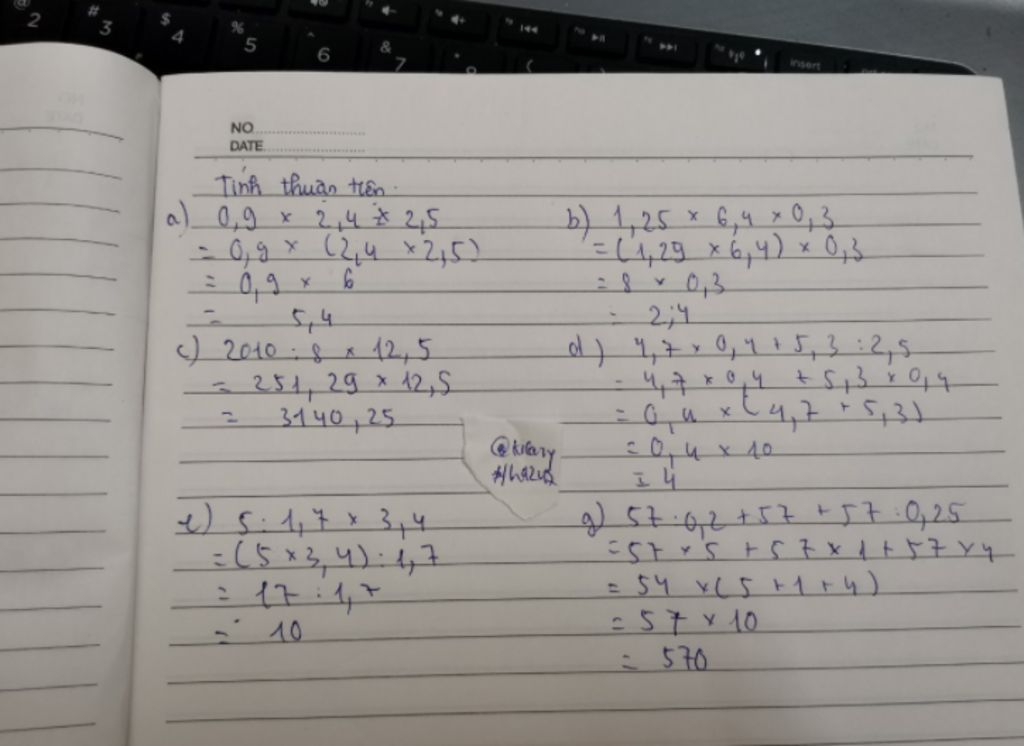 2
# 3
$ 4
% 5
^ 6
& 7
insert
NO
DATE
Tính thuận tiện.
a) 0,9 × 2,4 × 2,5
= 0,9 × (2,4 × 2,5)
= 0,9 × 6
= 5,4
b) 1,25 × 6,4 × 0,3
= (1,29 × 6,4) × 0,3
= 8 × 0,3
= 2,4
c) 2010 : 8 × 12,5
= 251,29 × 12,5
= 3140,25
d) 4,7 × 0,4 + 5,3 : 2,5
= 4,7 × 0,4 + 5,3 × 0,4
= 0,4 × (4,7 + 5,3)
= 0,4 × 10
= 4
e) 5 : 1,7 × 3,4
= (5 × 3,4) : 1,7
= 17 : 1,7
= 10
g) 57 : 0,2 + 57 + 57 : 0,25
= 57 × 5 + 57 × 1 + 57 × 4
= 54 × (5 + 1 + 4)
= 57 × 10
= 570